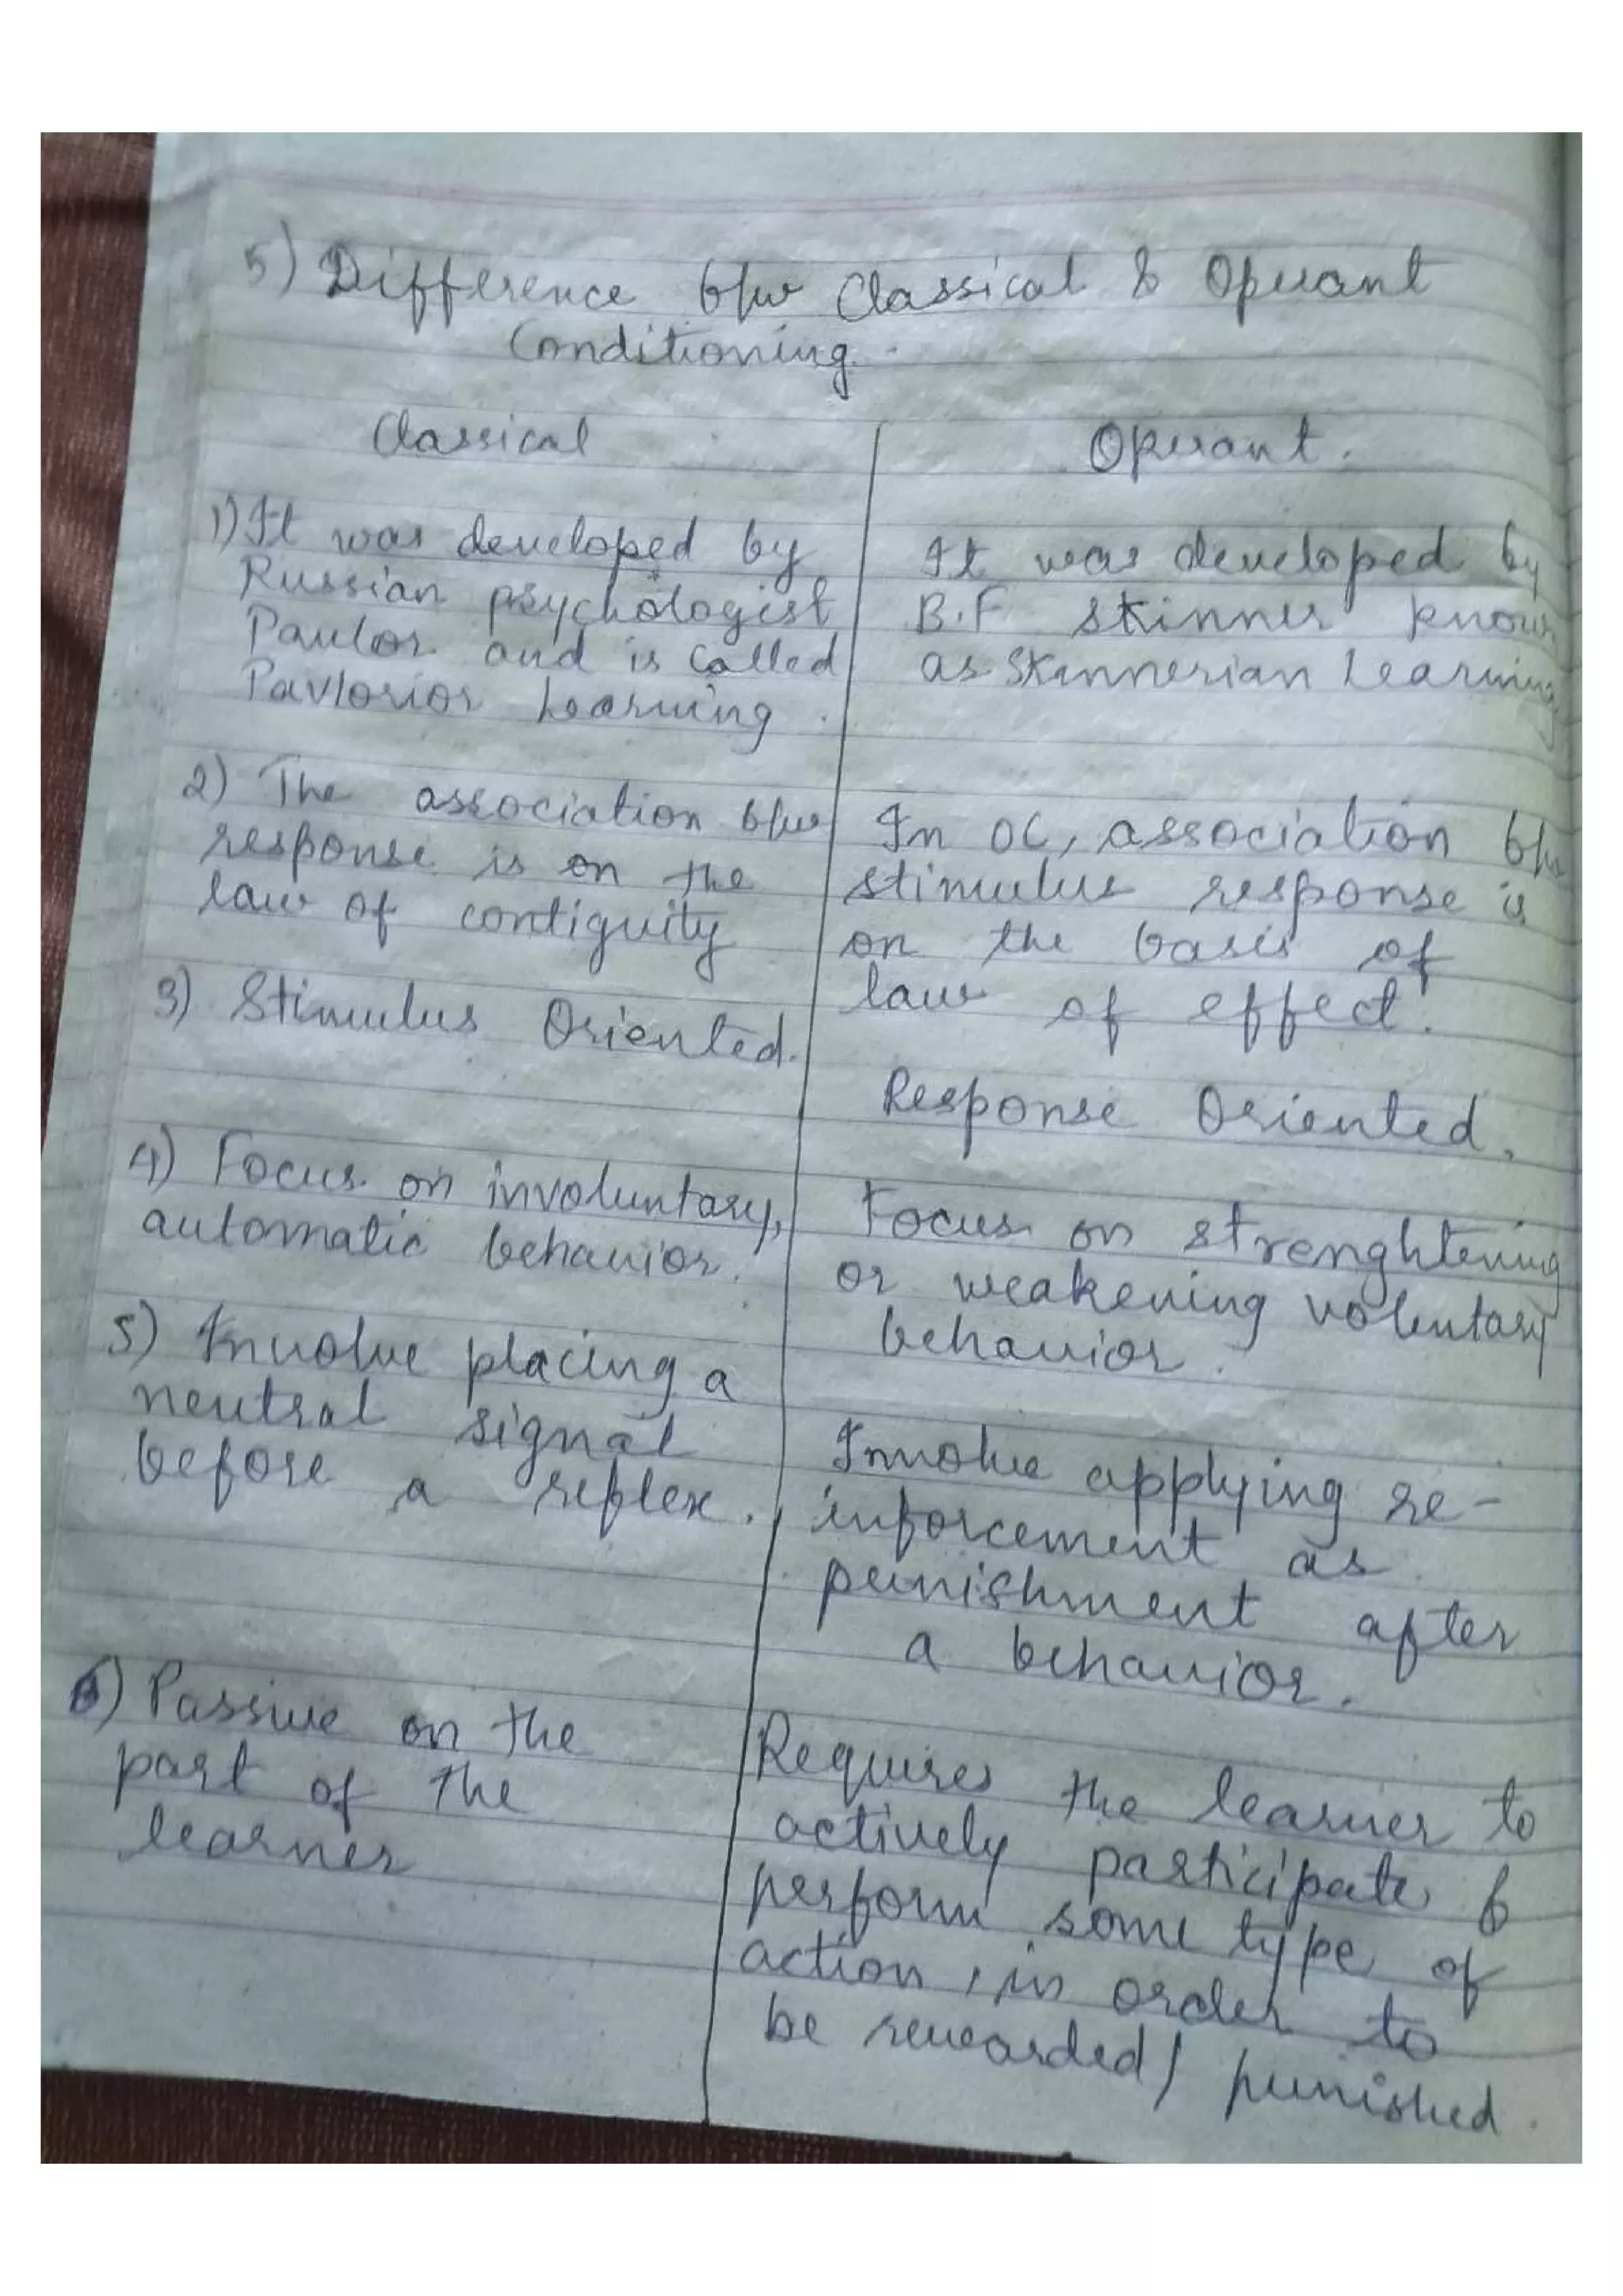 5) Difference b/w Classical & Operant
Conditioning.
Classical
1) It was developed by
Russian psychologist
Pavlov and is called
Pavlovior Learning.
2) The association b/w
response is on the
law of contiguity
3) Stimulus Oriented.
4) Focus on involuntary,
automatic behavior.
5) Involve placing a
neutral signal
before a reflex.
6) Passive on the
part of the
learner
Operant.
It was developed by
B.F skinner known
as Skinnerian Learning.
In OC, association b/w
stimulus response is
on the basis of
law of effect.
Response Oriented.
Focus on strenghtening
or weakening voluntary
behavior.
Involve applying re-
inforcement as
punishment after
a behavior.
Requires the learner to
actively participate &
perform some type of
action, in order to
be rewarded/punished.